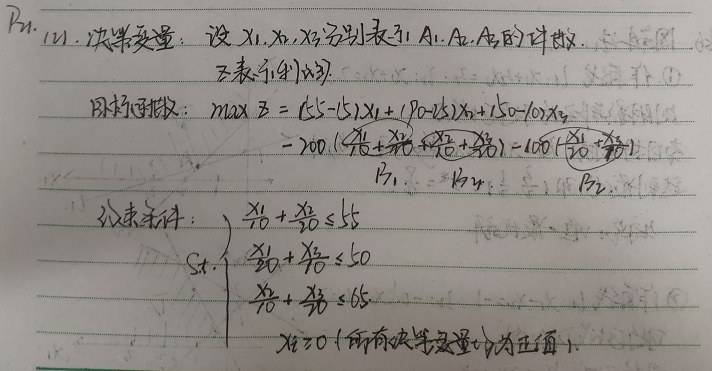 P21. (2). 决策变量: 设 X1. X2. X3 分别表示 A1. A2. A3 的件数.
Z表示利润.
目标函数: max Z = (55-15)X1 + (90-25)X2 + (50-10)X3
-200 ( X1/10 + X2/20 + X2/10 + X3/20 ) - 100 ( X1/20 + X3/10 )
B1. B2.
约束条件: X1/10 + X2/20 ≤ 55
St. X1/20 + X3/10 ≤ 50
X2/10 + X3/20 ≤ 65
Xi ≥ 0 (所有决策变量均为正值).